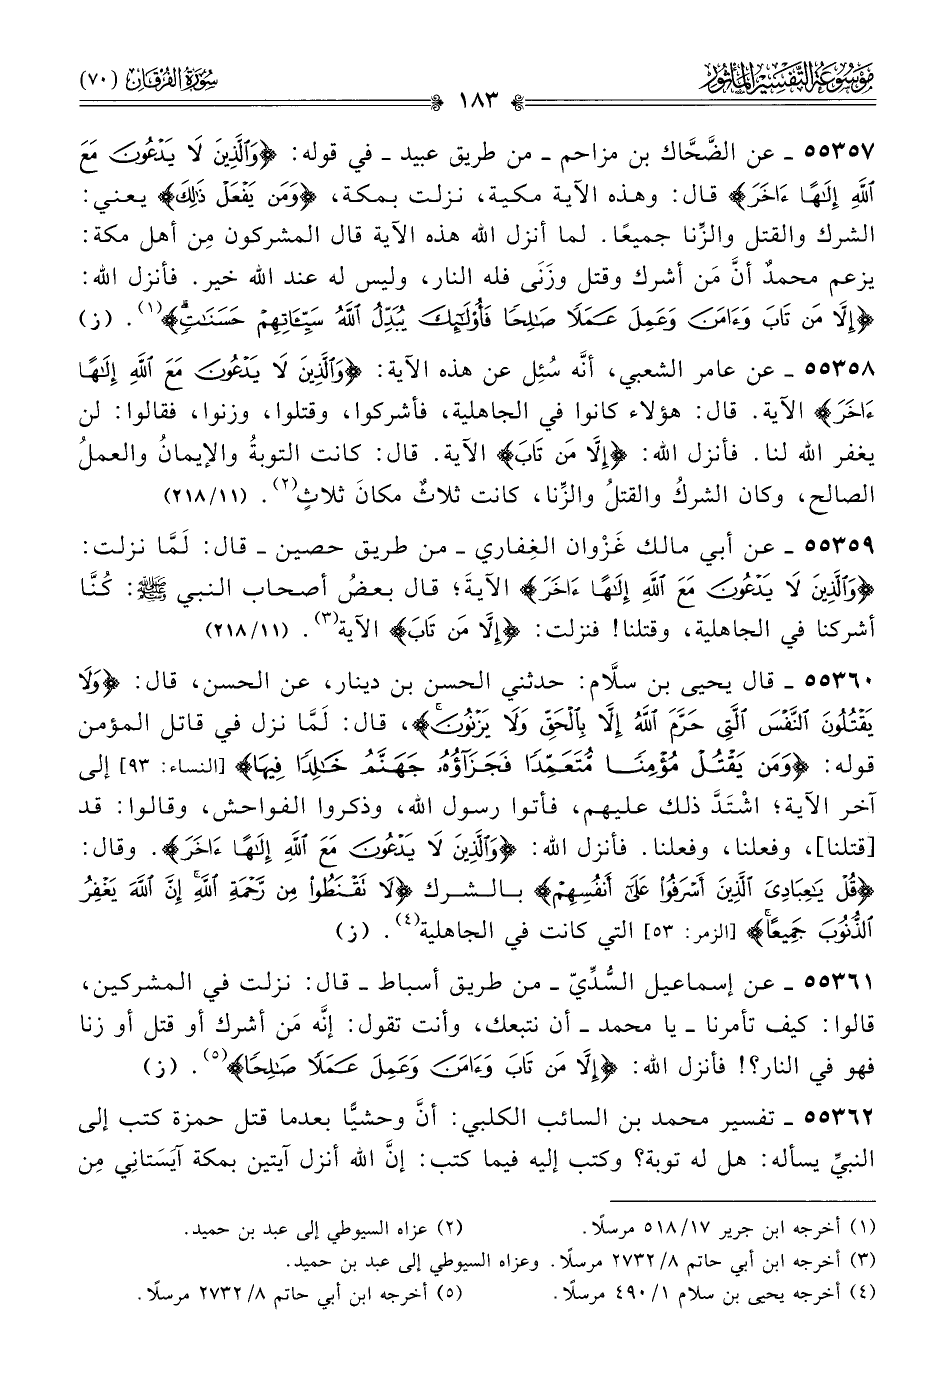 موسوعة التفسير المأثور
سورة الفرقان (٧٠)
١٨٣
٥٥٣٥٧ ـ عن الضَّحَّاك بن مزاحم ـ من طريق عبيد ـ في قوله: ﴿وَٱلَّذِينَ لَا يَدْعُونَ مَعَ
ٱللَّهِ إِلَٰهًا ءَاخَرَ﴾ قال: وهذه الآية مكية، نزلت بمكة، ﴿وَمَن يَفْعَلْ ذَٰلِكَ﴾ يعني:
الشرك والقتل والزِّنا جميعًا. لما أنزل الله هذه الآية قال المشركون مِن أهل مكة:
يزعم محمدٌ أنَّ مَن أشرك وقتل وزَنَى فله النار، وليس له عند الله خير. فأنزل الله:
﴿إِلَّا مَن تَابَ وَءَامَنَ وَعَمِلَ عَمَلًا صَٰلِحًا فَأُوْلَٰٓئِكَ يُبَدِّلُ ٱللَّهُ سَيِّـَٔاتِهِمْ حَسَنَٰتٍۗ﴾(١). (ز)
٥٥٣٥٨ ـ عن عامر الشعبي، أنَّه سُئِل عن هذه الآية: ﴿وَٱلَّذِينَ لَا يَدْعُونَ مَعَ ٱللَّهِ إِلَٰهًا
ءَاخَرَ﴾ الآية. قال: هؤلاء كانوا في الجاهلية، فأشركوا، وقتلوا، وزنوا، فقالوا: لن
يغفر الله لنا. فأنزل الله: ﴿إِلَّا مَن تَابَ﴾ الآية. قال: كانت التوبةُ والإيمانُ والعملُ
الصالح، وكان الشركُ والقتلُ والزِّنا، كانت ثلاثٌ مكانَ ثلاثٍ(٢). (٢١٨/١١)
٥٥٣٥٩ ـ عن أبي مالك غَزْوان الغِفاري ـ من طريق حصين ـ قال: لَمَّا نزلت:
﴿وَٱلَّذِينَ لَا يَدْعُونَ مَعَ ٱللَّهِ إِلَٰهًا ءَاخَرَ﴾ الآيةَ؛ قال بعضُ أصحاب النبي ﷺ: كُنَّا
أشركنا في الجاهلية، وقتلنا! فنزلت: ﴿إِلَّا مَن تَابَ﴾ الآية(٣). (٢١٨/١١)
٥٥٣٦٠ ـ قال يحيى بن سلَّام: حدثني الحسن بن دينار، عن الحسن، قال: ﴿وَلَا
يَقْتُلُونَ ٱلنَّفْسَ ٱلَّتِي حَرَّمَ ٱللَّهُ إِلَّا بِٱلْحَقِّ وَلَا يَزْنُونَۚ﴾، قال: لَمَّا نزل في قاتل المؤمن
قوله: ﴿وَمَن يَقْتُلْ مُؤْمِنًا مُّتَعَمِّدًا فَجَزَآؤُهُۥ جَهَنَّمُ خَٰلِدًا فِيهَا﴾ [النساء: ٩٣] إلى
آخر الآية؛ اشْتَدَّ ذلك عليهم، فأتوا رسول الله، وذكروا الفواحش، وقالوا: قد
[قتلنا]، وفعلنا، وفعلنا. فأنزل الله: ﴿وَٱلَّذِينَ لَا يَدْعُونَ مَعَ ٱللَّهِ إِلَٰهًا ءَاخَرَ﴾. وقال:
﴿قُلْ يَٰعِبَادِيَ ٱلَّذِينَ أَسْرَفُواْ عَلَىٰٓ أَنفُسِهِمْ﴾ بالشرك ﴿لَا تَقْنَطُواْ مِن رَّحْمَةِ ٱللَّهِۚ إِنَّ ٱللَّهَ يَغْفِرُ
ٱلذُّنُوبَ جَمِيعًاۚ﴾ [الزمر: ٥٣] التي كانت في الجاهلية(٤). (ز)
٥٥٣٦١ ـ عن إسماعيل السُّدِّيّ ـ من طريق أسباط ـ قال: نزلت في المشركين،
قالوا: كيف تأمرنا ـ يا محمد ـ أن نتبعك، وأنت تقول: إنَّه مَن أشرك أو قتل أو زنا
فهو في النار؟! فأنزل الله: ﴿إِلَّا مَن تَابَ وَءَامَنَ وَعَمِلَ عَمَلًا صَٰلِحًا﴾(٥). (ز)
٥٥٣٦٢ ـ تفسير محمد بن السائب الكلبي: أنَّ وحشيًّا بعدما قتل حمزة كتب إلى
النبيِّ يسأله: هل له توبة؟ وكتب إليه فيما كتب: إنَّ الله أنزل آيتين بمكة آيَسَتانِي مِن
(١) أخرجه ابن جرير ٥١٨/١٧ مرسلًا.
(٢) عزاه السيوطي إلى عبد بن حميد.
(٣) أخرجه ابن أبي حاتم ٢٧٣٢/٨ مرسلًا. وعزاه السيوطي إلى عبد بن حميد.
(٤) أخرجه يحيى بن سلام ٤٩٠/١ مرسلًا.
(٥) أخرجه ابن أبي حاتم ٢٧٣٢/٨ مرسلًا.